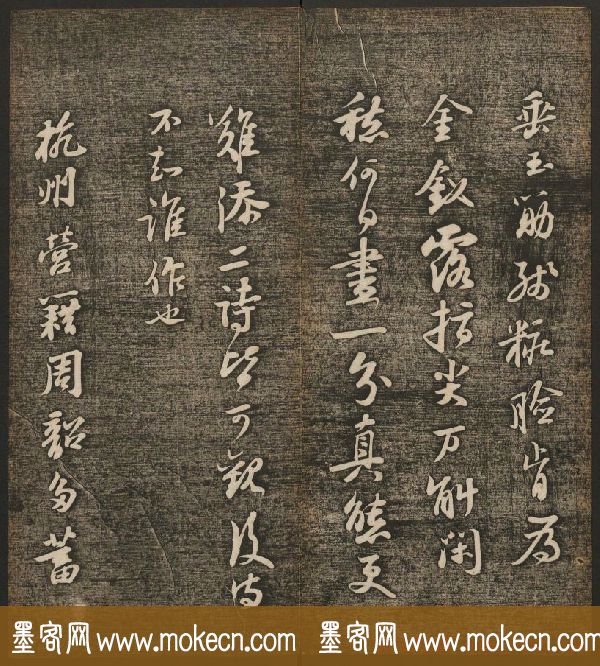 垂玉筋殘糚臉肯為
金釵露指尖万斛閑
愁何日盡一分真態更
難添二詩皆可觀後詩
不知誰作也
杭州營籍周韶多蓄
墨客网 www.mokecn.com 墨客网 www.mokecn.com